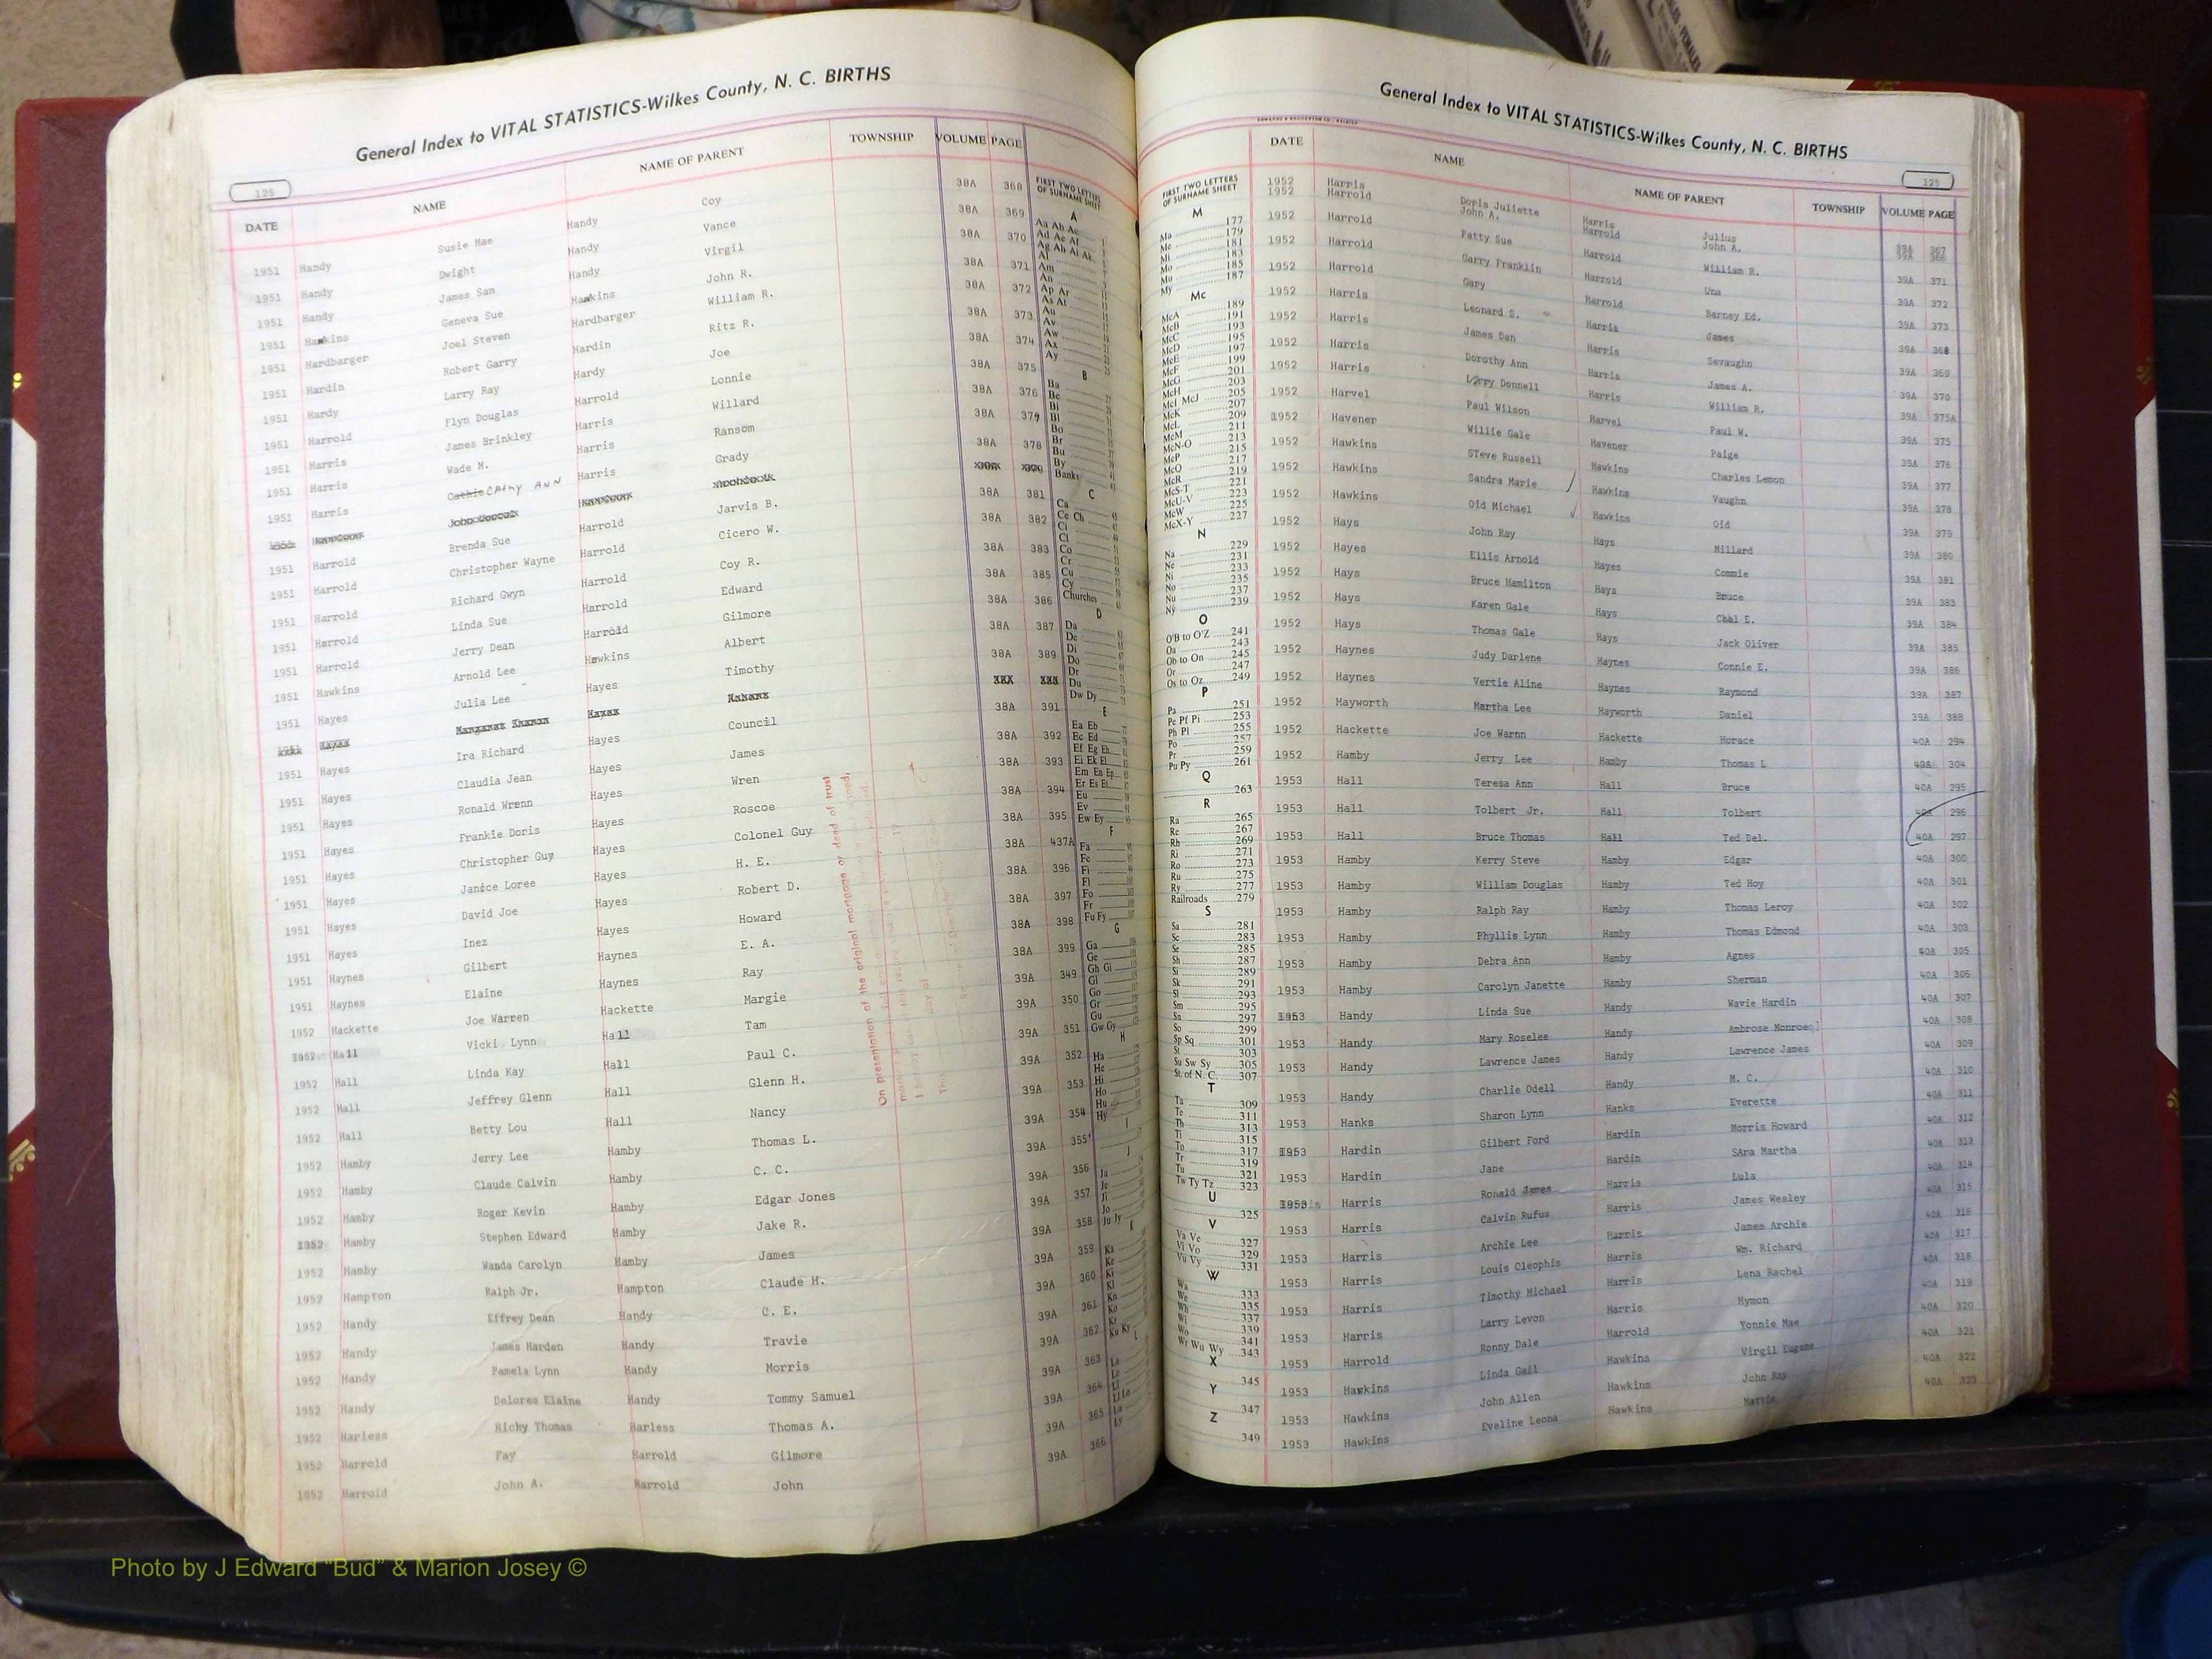 General Index to VITAL STATISTICS-Wilkes County, N. C. BIRTHS
125
DATE NAME NAME OF PARENT TOWNSHIP VOLUME PAGE
1951 Handy Susie Mae Handy Coy 38A 368
1951 Handy Dwight Handy Vance 38A 369
1951 Handy James Sam Handy Virgil 38A 370
1951 Hawkins Geneva Sue Hawkins John R. 38A 371
1951 Hardbarger Joel Steven Hardbarger William R. 38A 372
1951 Hardin Robert Garry Hardin Ritz R. 38A 373
1951 Hardy Larry Ray Hardy Joe 38A 374
1951 Harrold Flyn Douglas Harrold Lonnie 38A 375
1951 Harris James Brinkley Harris Willard 38A 376
1951 Harris Wade M. Harris Ransom 38A 377
1951 Harris Cathie CAthy ANN Harris Grady 38A 378
1951 Harrold Brenda Sue Harrold Jarvis B. 38A 381
1951 Harrold Christopher Wayne Harrold Cicero W. 38A 382
1951 Harrold Richard Gwyn Harrold Coy R. 38A 383
1951 Harrold Linda Sue Harrold Edward 38A 385
1951 Harrold Jerry Dean Harrold Gilmore 38A 386
1951 Hawkins Arnold Lee Hawkins Albert 38A 387
1951 Hayes Julia Lee Hayes Timothy 38A 389
1951 Hayes Ira Richard Hayes Council 38A 391
1951 Hayes Claudia Jean Hayes James 38A 392
1951 Hayes Ronald Wrenn Hayes Wren 38A 393
1951 Hayes Frankie Doris Hayes Roscoe 38A 394
1951 Hayes Christopher Guy Hayes Colonel Guy 38A 395
1951 Hayes Janice Loree Hayes H. E. 38A 437A
1951 Hayes David Joe Hayes Robert D. 38A 396
1951 Hayes Inez Hayes Howard 38A 397
1951 Haynes Gilbert Haynes E. A. 38A 398
1951 Haynes Elaine Haynes Ray 38A 399
1952 Hackette Joe Warren Hackette Margie 39A 349
1952 Hall Vicki Lynn Hall Tam 39A 350
1952 Hall Linda Kay Hall Paul C. 39A 351
1952 Hall Jeffrey Glenn Hall Glenn H. 39A 352
1952 Hall Betty Lou Hall Nancy 39A 353
1952 Hamby Jerry Lee Hamby Thomas L. 39A 354
1952 Hamby Claude Calvin Hamby C. C. 39A 355
1952 Hamby Roger Kevin Hamby Edgar Jones 39A 356
1952 Hamby Stephen Edward Hamby Jake R. 39A 357
1952 Hamby Wanda Carolyn Hamby James 39A 358
1952 Hampton Ralph Jr. Hampton Claude H. 39A 359
1952 Handy Effrey Dean Handy C. E. 39A 360
1952 Handy James Harden Handy Travie 39A 361
1952 Handy Pamela Lynn Handy Morris 39A 362
1952 Handy Delores Elaine Handy Tommy Samuel 39A 363
1952 Harless Richy Thomas Harless Thomas A. 39A 364
1952 Harrold Fay Harrold Gilmore 39A 365
1952 Harrold John A. Harrold John 39A 366
On presentation of the original mortgage or deed of trust
FIRST TWO LETTERS
OF SURNAME SHEET
A
Aa Ab Ac
Ad Ae Af
Ag Ah Ai Ak
Al
Am
An
Ap Ar
As At
Au
Av
Aw
Ax
Ay
B
Ba
Be
Bi
Bl
Bo
Br
Bu
By
Banks
C
Ca
Ce Ch
Ci
Cl
Co
Cr
Cu
Cy
Churches
D
Da
De
Di
Do
Dr
Du
Dw Dy
E
Ea Eb
Ec Ed
Ef Eg Eh
Ei Ek El
Em En Ep
Er Es Et
Eu
Ev
Ew Ey
F
Fa
Fe
Fi
Fl
Fo
Fr
Fu Fy
G
Ga
Ge
Gh Gi
Gl
Go
Gr
Gu
Gw Gy
H
Ha
He
Hi
Ho
Hu
Hy
I
J
Ja
Je
Ji
Jo
Ju Jy
K
Ka
Ke
Ki
Kl
Kn
Ko
Kr
Ku Ky
L
La
Le
Li
Ll Lo
Lu
Ly
General Index to VITAL STATISTICS-Wilkes County, N. C. BIRTHS
125
FIRST TWO LETTERS
OF SURNAME SHEET
M
Ma 177
Me 179
Mi 181
Mo 183
Mu 185
My 187
Mc
McA 189
McB 191
McC 193
McD 195
McE 197
McF 199
McG 201
McH 203
McI McJ 205
McK 207
McL 209
McM 211
McN-O 213
McP 215
McQ 217
McR 219
McS-T 221
McU-V 223
McW 225
McX-Y 227
N
Na 229
Ne 231
Ni 233
No 235
Nu 237
Ny 239
O
O'B to O'Z 241
Oa 243
Ob to On 245
Or 247
Os to Oz 249
P
Pa 251
Pe Pf Pi 253
Ph Pl 255
Po 257
Pr 259
Pu Py 261
Q
263
R
Ra 265
Re 267
Rh 269
Ri 271
Ro 273
Ru 275
Ry 277
Railroads 279
S
Sa 281
Sc 283
Se 285
Sh 287
Si 289
Sk 291
Sl 293
Sm 295
Sn 297
So 299
Sp Sq 301
St 303
Su Sw Sy 305
St. of N. C. 307
T
Ta 309
Te 311
Th 313
Ti 315
To 317
Tr 319
Tu 321
Tw Ty Tz 323
U
325
V
Va Ve 327
Vi Vo 329
Vu Vy 331
W
Wa 333
We 335
Wh 337
Wi 339
Wo 341
Wr Wu Wy 343
X
345
Y
347
Z
349
DATE NAME NAME OF PARENT TOWNSHIP VOLUME PAGE
1952 Harris Doris Juliette Harris Julius 39A 367
1952 Harrold John A. Harrold John A. 39A 366
1952 Harrold Patty Sue Harrold William R. 39A 371
1952 Harrold Garry Franklin Harrold Una 39A 372
1952 Harrold Gary Harrold Barney Ed. 39A 373
1952 Harris Leonard S. Harris James 39A 368
1952 Harris James Dan Harris Sevaughn 39A 369
1952 Harris Dorothy Ann Harris James A. 39A 370
1952 Harris Larry Donnell Harris William R. 39A 375A
1952 Harvel Paul Wilson Harvel Paul W. 39A 375
1952 Havener Willie Gale Havener Paige 39A 376
1952 Hawkins STeve Russell Hawkins Charles Lemon 39A 377
1952 Hawkins Sandra Marie Hawkins Vaughn 39A 378
1952 Hawkins Oid Michael Hawkins Oid 39A 379
1952 Hays John Ray Hays Millard 39A 380
1952 Hayes Ellis Arnold Hayes Commie 39A 381
1952 Hays Bruce Hamilton Hays Bruce 39A 383
1952 Hays Karen Gale Hays Chal E. 39A 384
1952 Hays Thomas Gale Hays Jack Oliver 39A 385
1952 Haynes Judy Darlene Haynes Connie E. 39A 386
1952 Haynes Vertie Aline Haynes Raymond 39A 387
1952 Hayworth Martha Lee Hayworth Daniel 39A 388
1952 Hackette Joe Warnn Hackette Horace 40A 294
1952 Hamby Jerry Lee Hamby Thomas L 40A 304
1953 Hall Teresa Ann Hall Bruce 40A 295
1953 Hall Tolbert Jr. Hall Tolbert 40A 296
1953 Hall Bruce Thomas Hall Ted Del. 40A 297
1953 Hamby Kerry Steve Hamby Edgar 40A 300
1953 Hamby William Douglas Hamby Ted Hoy 40A 301
1953 Hamby Ralph Ray Hamby Thomas Leroy 40A 302
1953 Hamby Phyllis Lynn Hamby Thomas Edmond 40A 303
1953 Hamby Debra Ann Hamby Agnes 40A 305
1953 Hamby Carolyn Janette Hamby Sherman 40A 306
1953 Handy Linda Sue Handy Wavie Hardin 40A 307
1953 Handy Mary Roselee Handy Ambrose Monroe 40A 308
1953 Handy Lawrence James Handy Lawrence James 40A 309
1953 Handy Charlie Odell Handy M. C. 40A 310
1953 Hanks Sharon Lynn Hanks Everette 40A 311
1953 Hardin Gilbert Ford Hardin Morris Howard 40A 312
1953 Hardin Jane Hardin SAra Martha 40A 313
1953 Harris Ronald James Harris Lula 40A 314
1953 Harris Calvin Rufus Harris James Wesley 40A 315
1953 Harris Archie Lee Harris James Archie 40A 316
1953 Harris Louis Cleophis Harris Wm. Richard 40A 317
1953 Harris Timothy Michael Harris Lena Rachel 40A 318
1953 Harris Larry Levon Harris Hymon 40A 319
1953 Harrold Ronny Dale Harrold Yonnie Mae 40A 320
1953 Hawkins Linda Gail Hawkins Virgil Eugene 40A 321
1953 Hawkins John Allen Hawkins John Ray 40A 322
1953 Hawkins Eveline Leona Hawkins Mattie 40A 323
Photo by J Edward “Bud” & Marion Josey ©